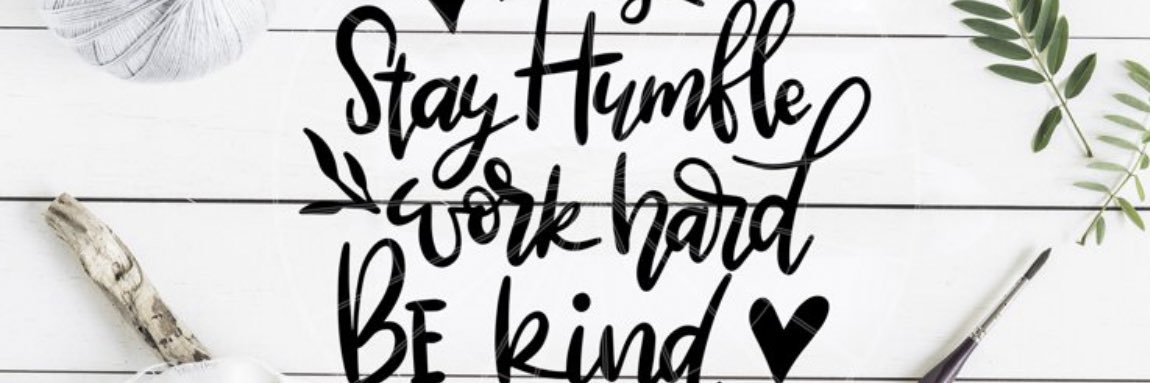 Stay Humble
work hard
BE kind